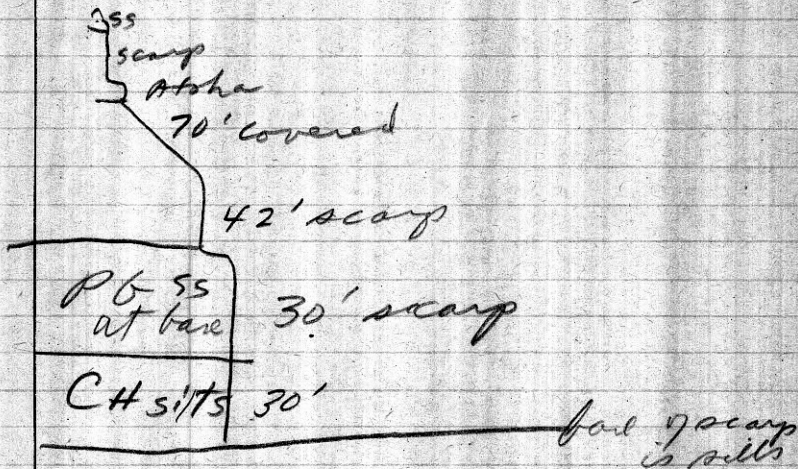 ss
scarp
Atoka
70' covered
42' scarp
PG ss
at base
30' scarp
CH silts 30'
base of scarp
is silts